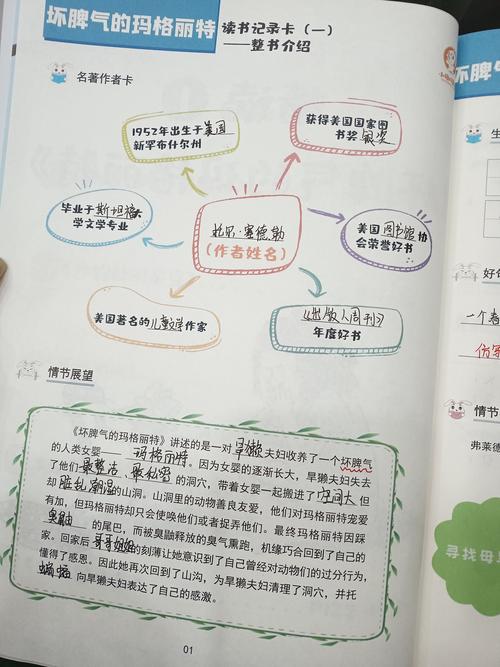 坏脾气的玛格丽特 读书记录卡（一）
——整书介绍
名著作者卡
1952年出生于美国
新罕布什尔州
获得美国国家图
书奖银奖
毕业于斯坦福大
学文学专业
托尔·赛德勒
（作者姓名）
美国图书馆协
会荣誉好书
美国著名的儿童文学作家
《出版人周刊》
年度好书
情节展望
《坏脾气的玛格丽特》讲述的是一对旱獭夫妇收养了一个坏脾气
的人类女婴——玛格丽特。因为女婴的逐渐长大，旱獭夫妇失去
了他们最整洁、最私密的洞穴，带着女婴一起搬进了空间大但
却脏乱潮湿的山洞。山洞里的动物善良友爱，他们对玛格丽特宠爱
有加，但玛格丽特却只会使唤他们或者捉弄他们。最终玛格丽特因踩
臭鼬的尾巴，而被臭鼬释放的臭气熏跑，机缘巧合回到了自己的
家。回家后哥哥姐姐的刻薄让她意识到了自己曾经对动物们的过分行为，
懂得了感恩。因此她再次回到了山沟，为旱獭夫妇清理了洞穴，并托
蝙蝠向旱獭夫妇表达了自己的感激。
01
坏脾
生
好句
一个春
仿写
情节
弗莱德
寻找母